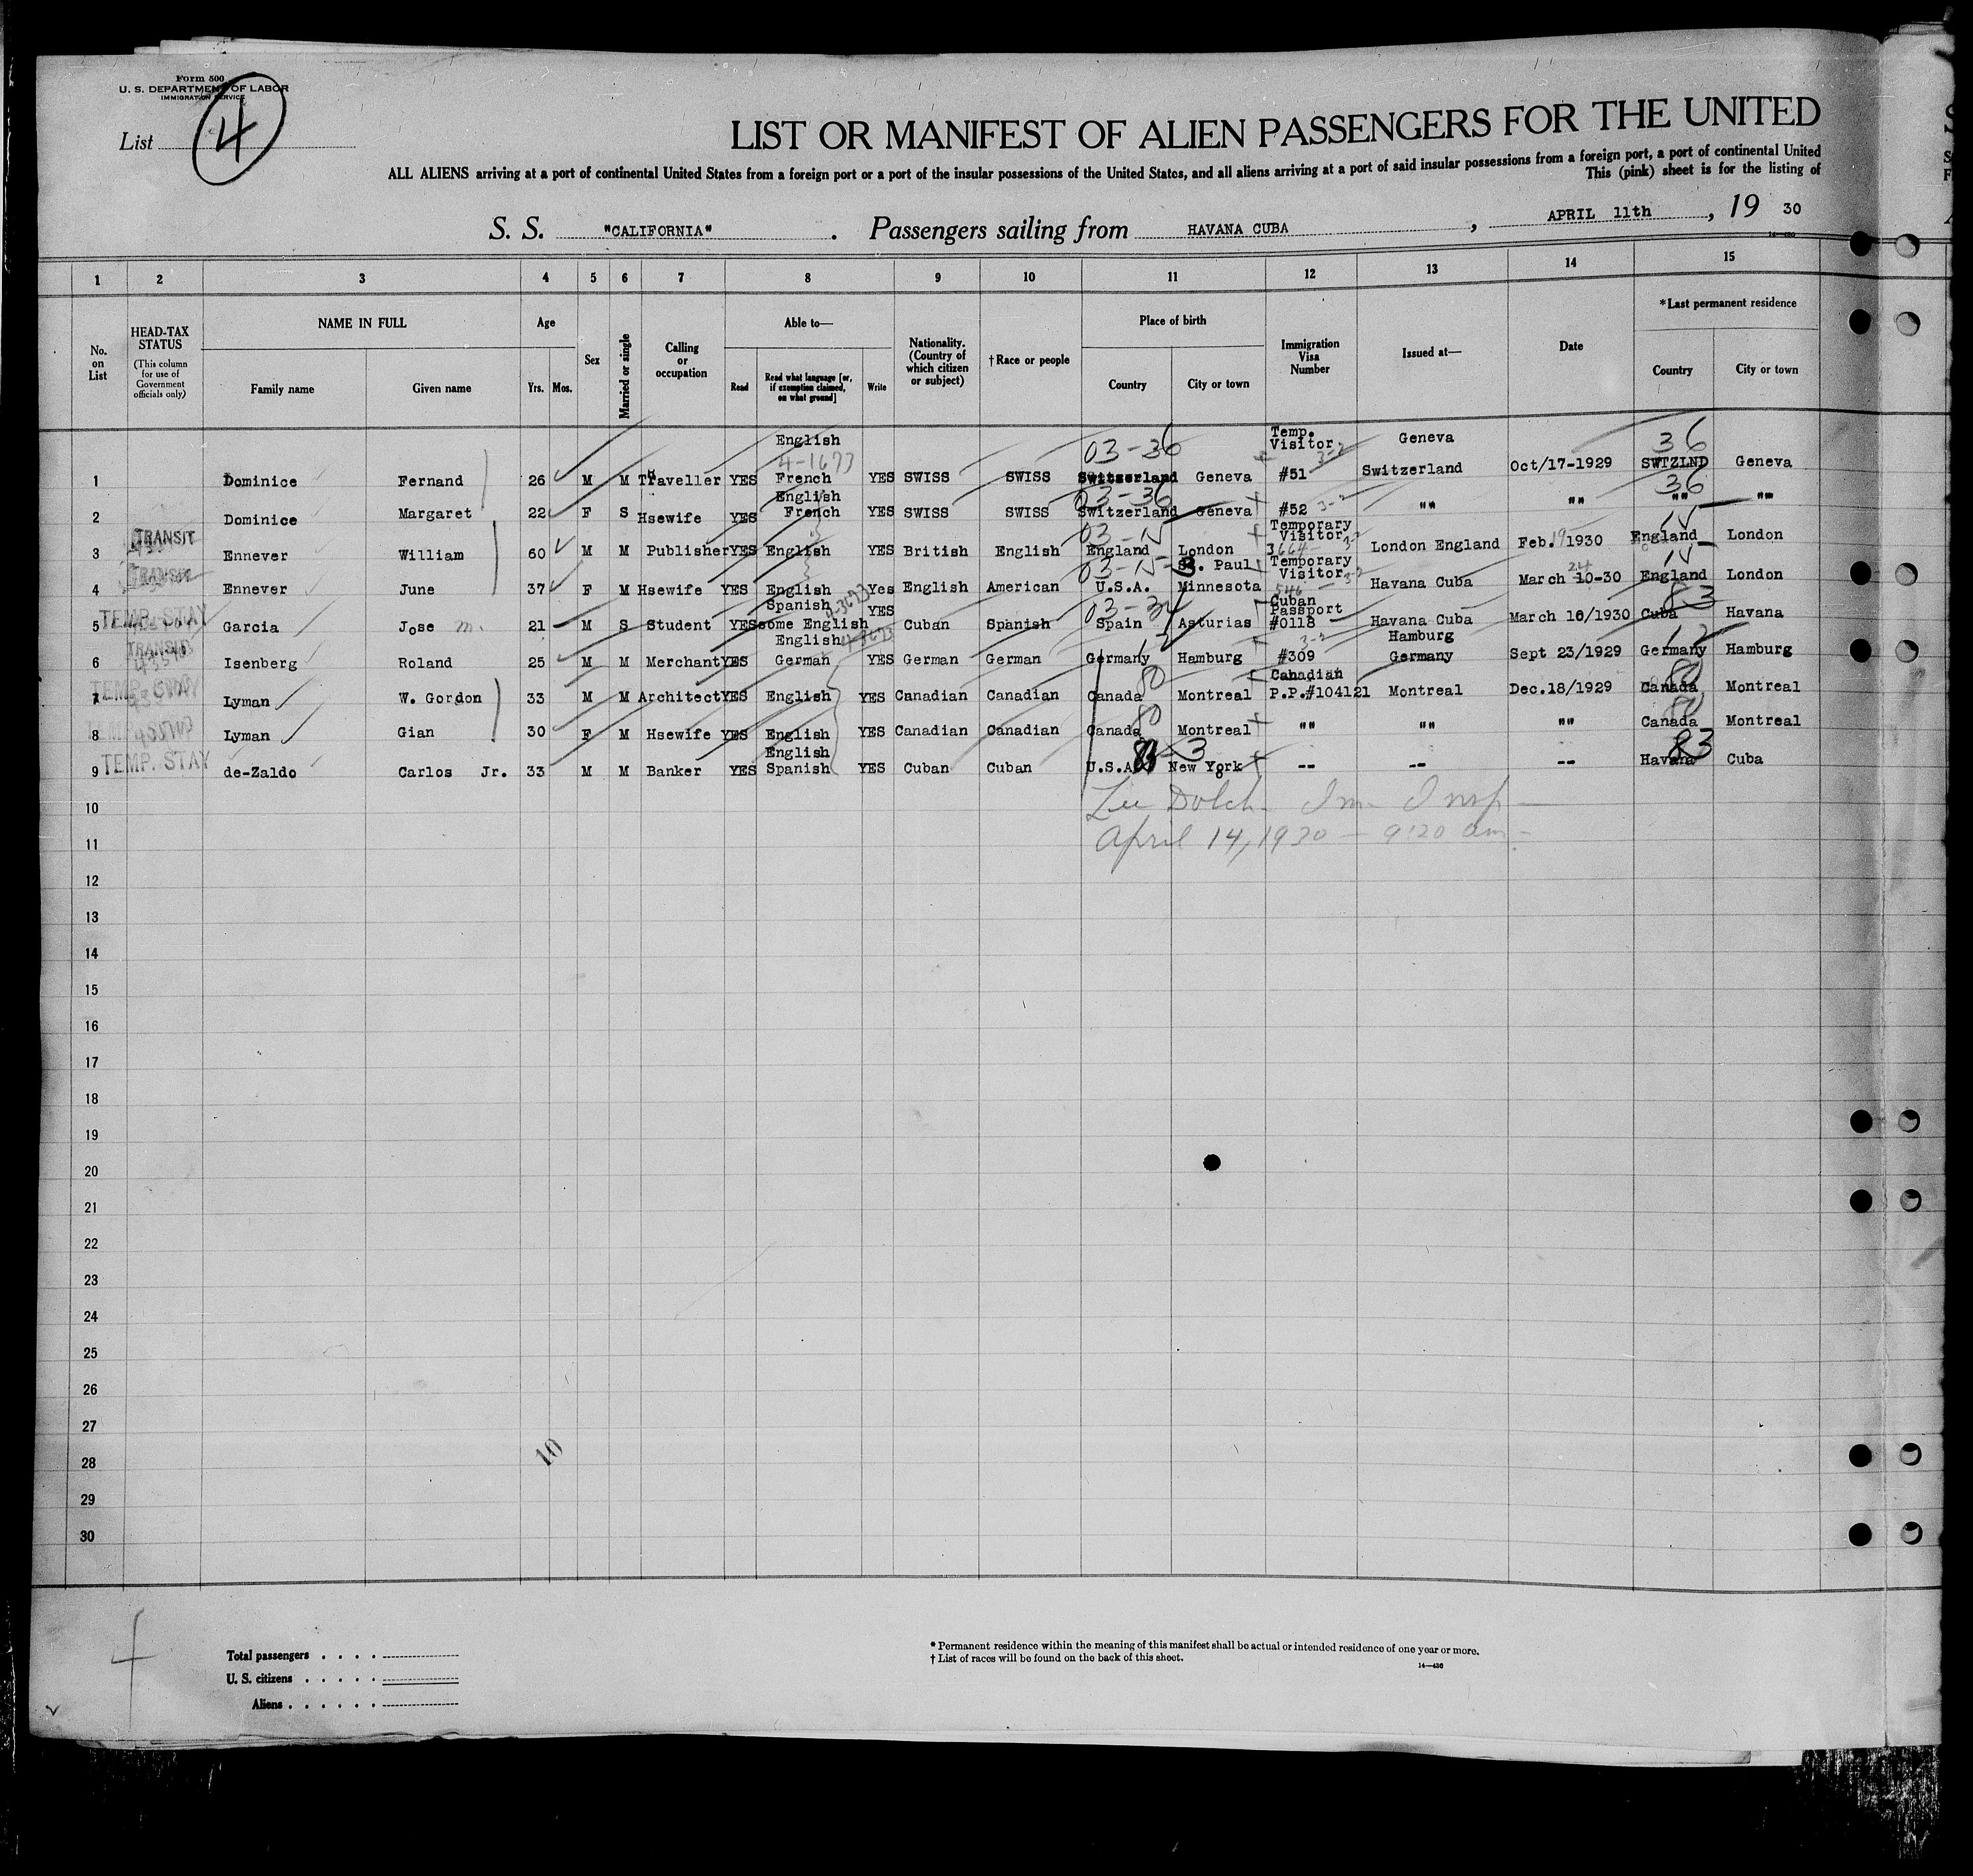 Form 500
U. S. DEPARTMENT OF LABOR
IMMIGRATION SERVICE
List 4
LIST OR MANIFEST OF ALIEN PASSENGERS FOR THE UNITED
ALL ALIENS arriving at a port of continental United States from a foreign port or a port of the insular possessions of the United States, and all aliens arriving at a port of said insular possessions from a foreign port, a port of continental United
This (pink) sheet is for the listing of
S. S. "CALIFORNIA" . Passengers sailing from HAVANA CUBA , APRIL 11th , 19 30
1 2 3 4 5 6 7 8 9 10 11 12 13 14 15
No. on List
HEAD-TAX STATUS
(This column for use of Government officials only)
NAME IN FULL
Family name
Given name
Age
Yrs. Mos.
Sex
Married or single
Calling or occupation
Able to—
Read
Read what language [or, if exemption claimed, on what ground]
Write
Nationality. (Country of which citizen or subject)
†Race or people
Place of birth
Country
City or town
Immigration Visa Number
Issued at—
Date
*Last permanent residence
Country
City or town
English 03-36 Temp. Visitor 3-2 Geneva 36
4-1673
1 Dominice Fernand 26 M M Traveller YES French YES SWISS SWISS Switzerland Geneva #51 Switzerland Oct/17-1929 SWTZLND Geneva
English 03-36 36
2 Dominice Margaret 22 F S Hsewife YES French YES SWISS SWISS Switzerland Geneva #52 3-2 "" "" "" ""
TRANSIT 03-15 Temporary Visitor 15
3 Ennever William 60 M M Publisher YES English YES British English England London 3664 3-2 London England Feb. 19 1930 England London
TRANSIT 03-15-3 St. Paul Temporary Visitor 3-2 24 15
4 Ennever June 37 F M Hsewife YES English Yes English American U.S.A. Minnesota 546 Havana Cuba March 10-30 England London
TEMP. STAY Spanish 4-3673 YES 03-34 Cuban Passport 83
5 Garcia Jose m. 21 M S Student YES some English Cuban Spanish Spain Asturias #0118 Havana Cuba March 10/1930 Cuba Havana
TRANSIT English 4-3673 12 3-2 Hamburg 12
6 Isenberg Roland 25 M M Merchant YES German YES German German Germany Hamburg #309 Germany Sept 23/1929 Germany Hamburg
TEMP. STAY 80 Canadian 80
7 Lyman W. Gordon 33 M M Architect YES English YES Canadian Canadian Canada Montreal P.P.#104121 Montreal Dec.18/1929 Canada Montreal
80 80
8 Lyman Gian 30 F M Hsewife YES English YES Canadian Canadian Canada Montreal "" "" "" Canada Montreal
TEMP. STAY English 3 83
9 de-Zaldo Carlos Jr. 33 M M Banker YES Spanish YES Cuban Cuban U.S.A. New York -- -- -- Havana Cuba
10
Im. Insp
11
April 14, 1930 — 9:20 am-
12
13
14
15
16
17
18
19
20
21
22
23
24
25
26
27
28
29
30
10
Total passengers
U. S. citizens
Aliens
* Permanent residence within the meaning of this manifest shall be actual or intended residence of one year or more.
† List of races will be found on the back of this sheet.
14—436